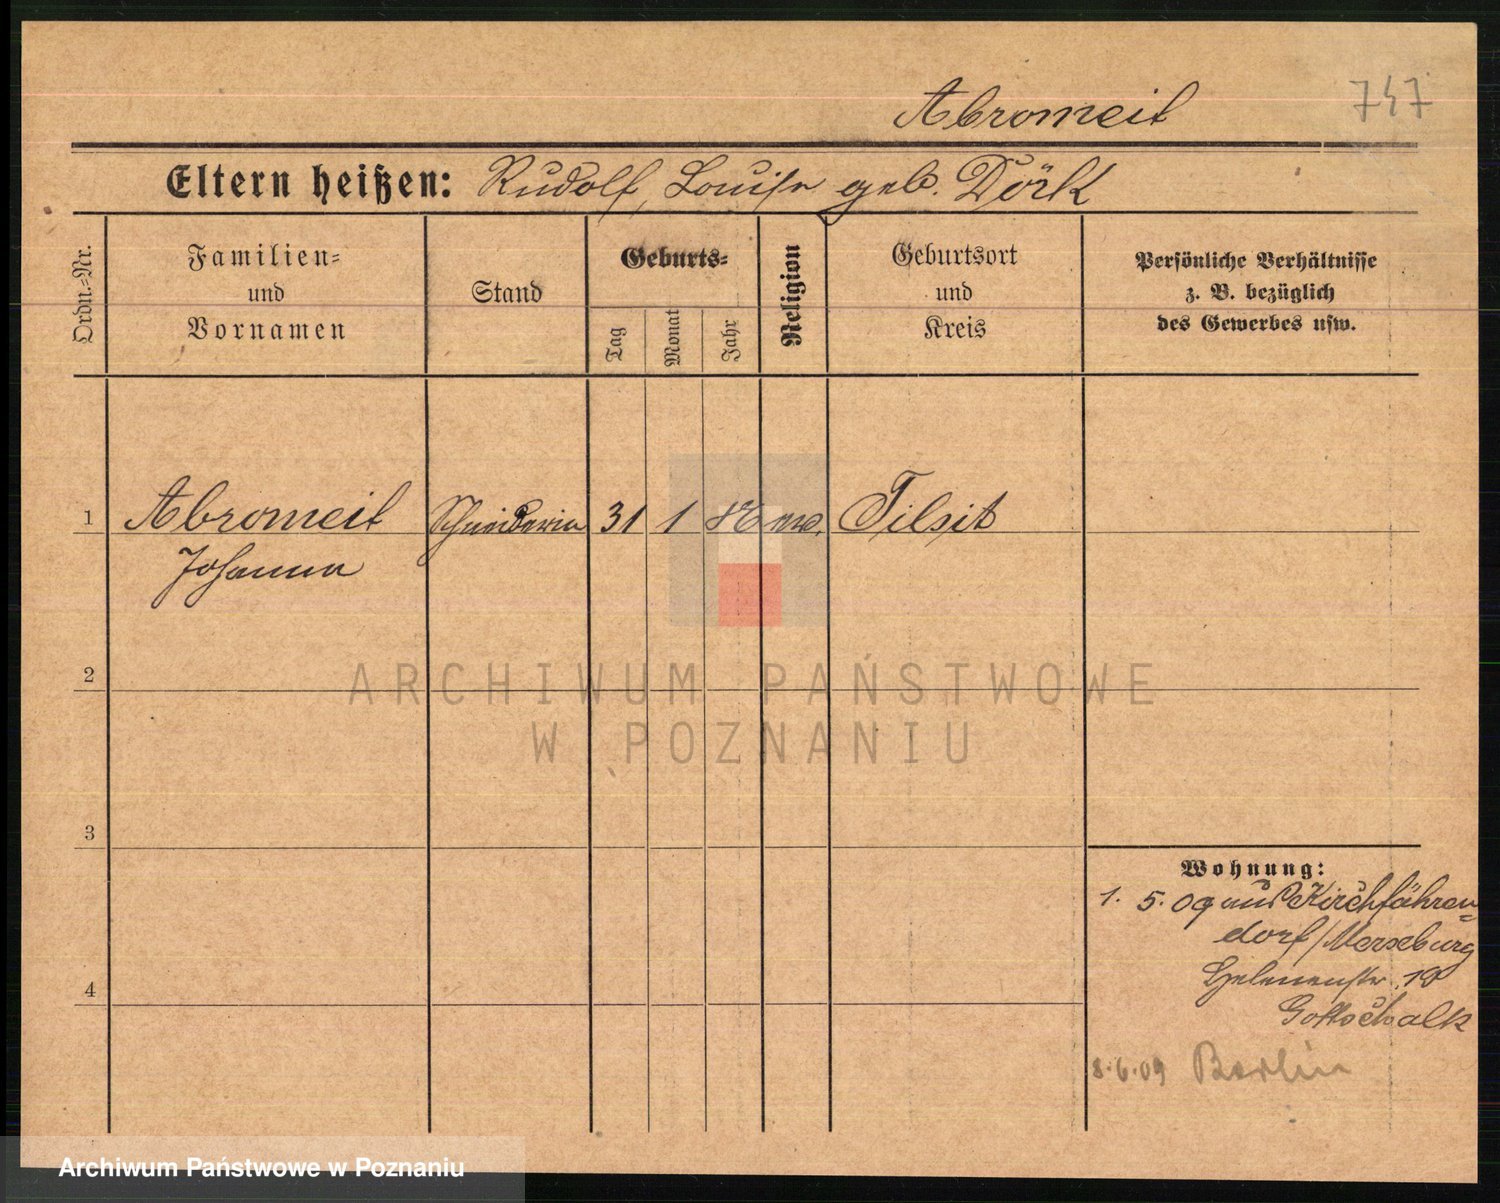 Abromeit 747
Eltern heißen: Rudolf, Louise geb. Dörk
Ordn.-Nr.
Familien-
und
Vornamen
Stand
Geburts-
Tag
Monat
Jahr
Religion
Geburtsort
und
Kreis
Persönliche Verhältnisse
z. B. bezüglich
des Gewerbes usw.
1 Abromeit Schneiderin 31 1 ew. Tilsit
Johanna
2
3
4
Wohnung:
1. 5. 09 aus Kirchfähren=
dorf/Merseburg
Helenenstr.
Gottschalk
8.6.09 Berlin
ARCHIWUM PAŃSTWOWE
W POZNANIU
Archiwum Państwowe w Poznaniu